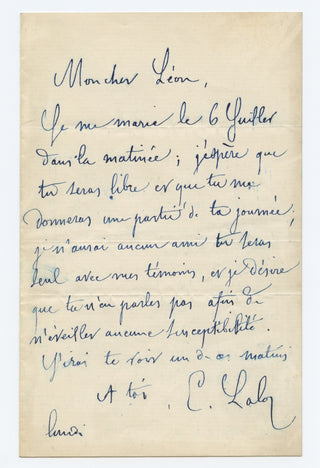 Mon cher Léon,
Je me marie le 6 Juillet
dans la matinée ; j'espère que
tu seras libre et que tu me
donneras une partie de ta journée ;
je n'aurai aucun ami tu seras
seul avec mes témoins, et je désire
que tu n'en parles pas afin de
n'éveiller aucune susceptibilité.
J'irai te voir un de ces matins
A toi, E. Lalo
lundi